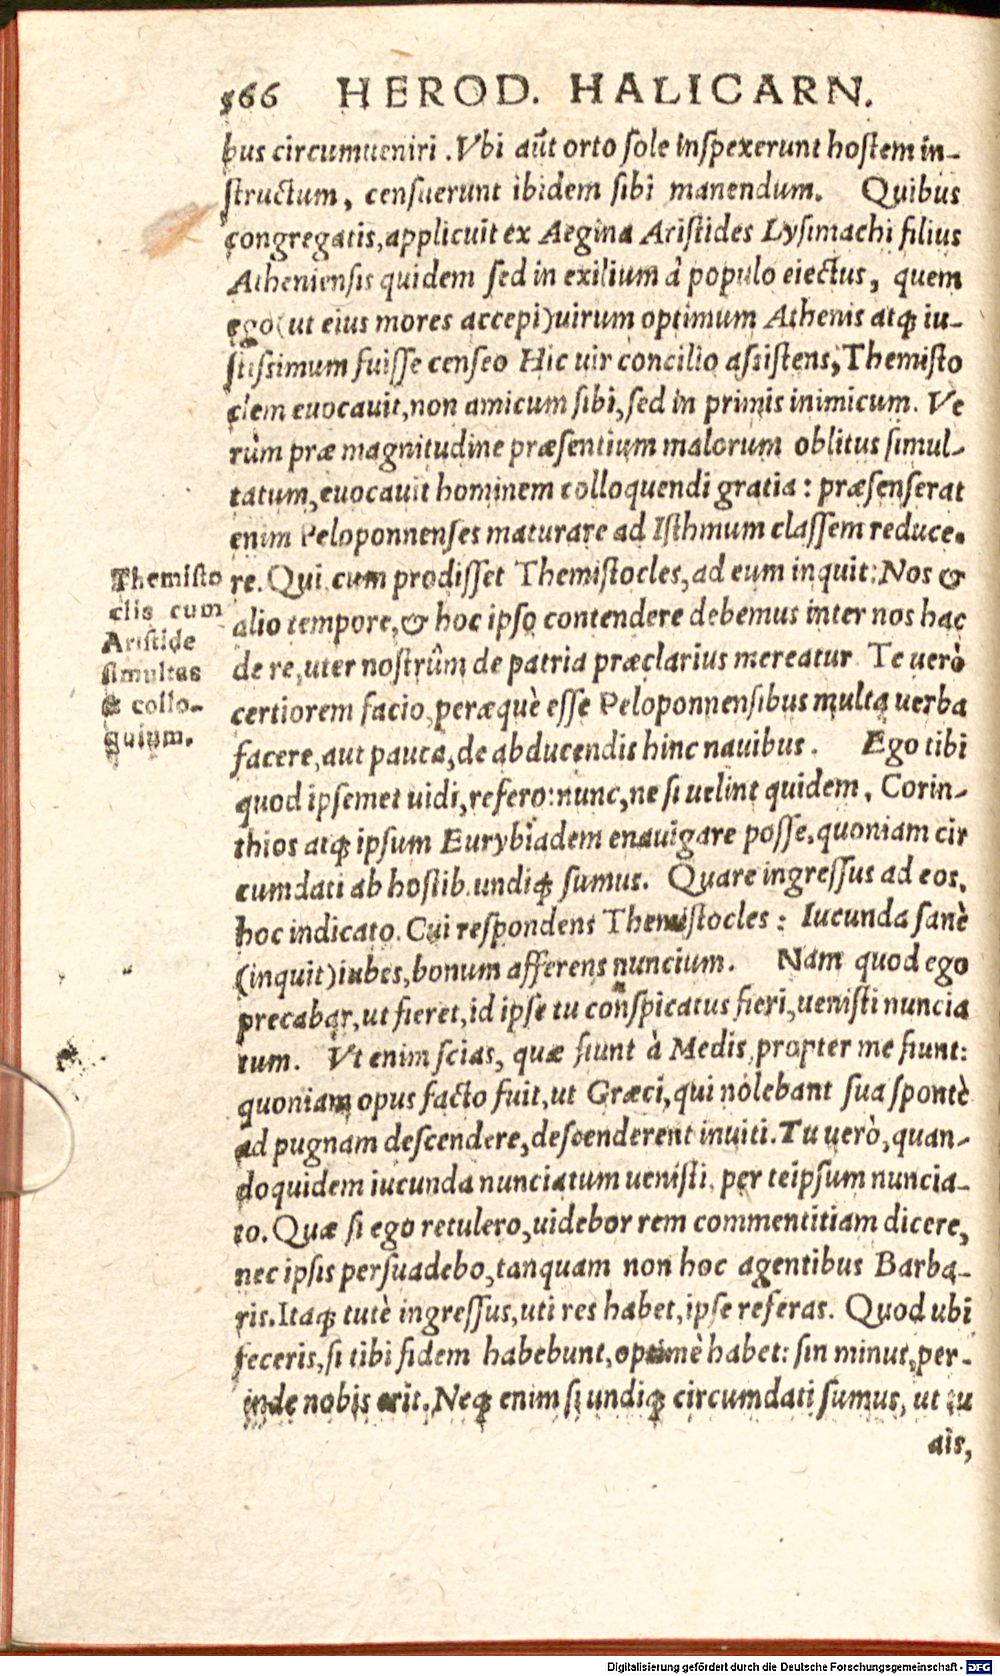 566 HEROD. HALICARN.
bus circumueniri. Vbi aũt orto sole inspexerunt hostem in-
structum, censuerunt ibidem sibi manendum. Quibus
congregatis, applicuit ex Aegina Aristides Lysimachi filius
Atheniensis quidem sed in exilium à populo eiectus, quem
ego (ut eius mores accepi) uirum optimum Athenis atq; iu-
stissimum fuisse censeo Hic uir concilio assistens, Themisto
clem euocauit, non amicum sibi, sed in primis inimicum. Ve
rùm præ magnitudine præsentium malorum oblitus simul-
tatum, euocauit hominem colloquendi gratia: præsenserat
enim Peloponnenses maturare ad Isthmum classem reduce-
re. Qui cum prodisset Themistocles, ad eum inquit: Nos &
alio tempore, & hoc ipso contendere debemus inter nos hac
de re, uter nostrûm de patria præclarius mereatur Te uerò
certiorem facio, peræquè esse Peloponnensibus multa uerba
facere, aut pauca, de abducendis hinc nauibus. Ego tibi
quod ipsemet uidi, refero: nunc, ne si uelint quidem, Corin-
thios atq; ipsum Eurybiadem enauigare posse, quoniam cir
cumdati ab hostib. undiq; sumus. Quare ingressus ad eos,
hoc indicato. Cui respondens Themistocles: Iucunda sanè
(inquit) iubes, bonum afferens nuncium. Nam quod ego
precabar, ut fieret, id ipse tu conspicatus fieri, uenisti nuncia
tum. Vt enim scias, quæ fiunt à Medis, propter me fiunt:
quoniam opus facto fuit, ut Græci, qui nolebant sua spontè
ad pugnam descendere, descenderent inuiti. Tu uerò, quan-
doquidem iucunda nunciatum uenisti, per teipsum nuncia-
to. Quæ si ego retulero, uidebor rem commentitiam dicere,
nec ipsis persuadebo, tanquam non hoc agentibus Barba-
ris. Itaq; tutè ingressus, uti res habet, ipse referas. Quod ubi
feceris, si tibi fidem habebunt, optimè habet: sin minus, per-
inde nobis erit. Neq; enim si undiq; circumdati sumus, ut tu
ais,
Themisto
clis cum
Aristide
simultas
& collo-
quium.
Digitalisierung gefördert durch die Deutsche Forschungsgemeinschaft - DFG